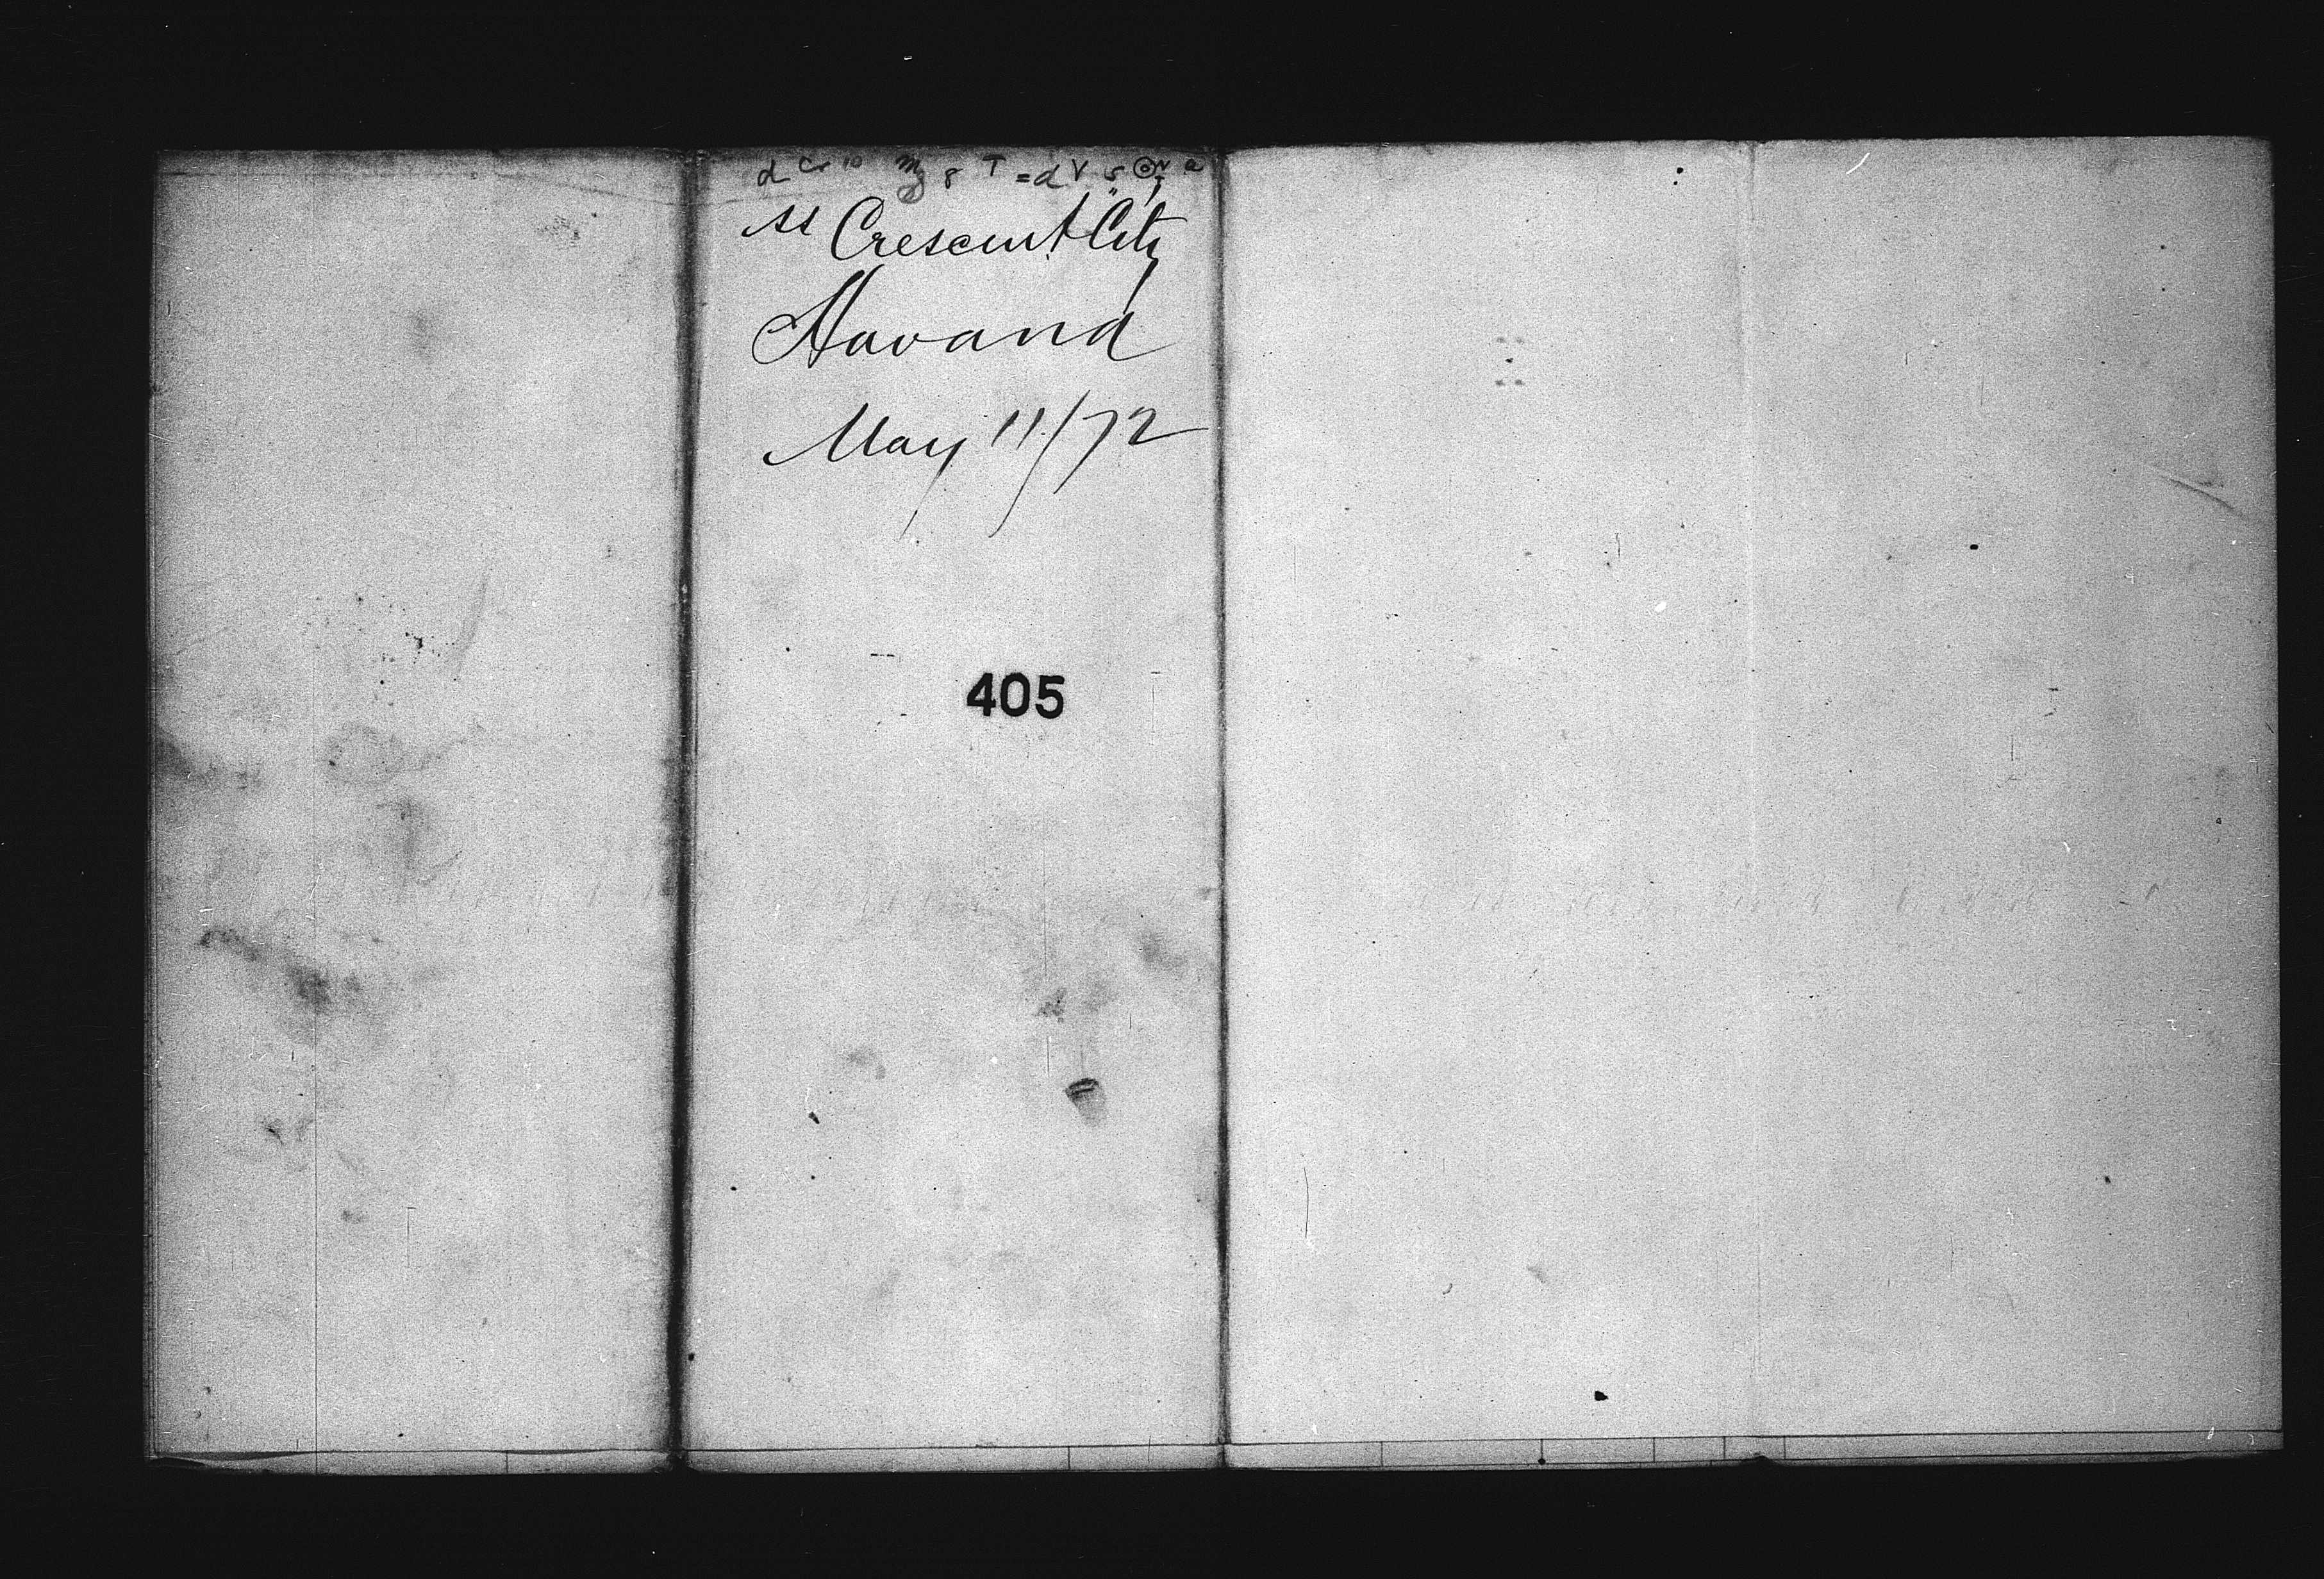 SS Crescent City
Havana
May 11/72
405